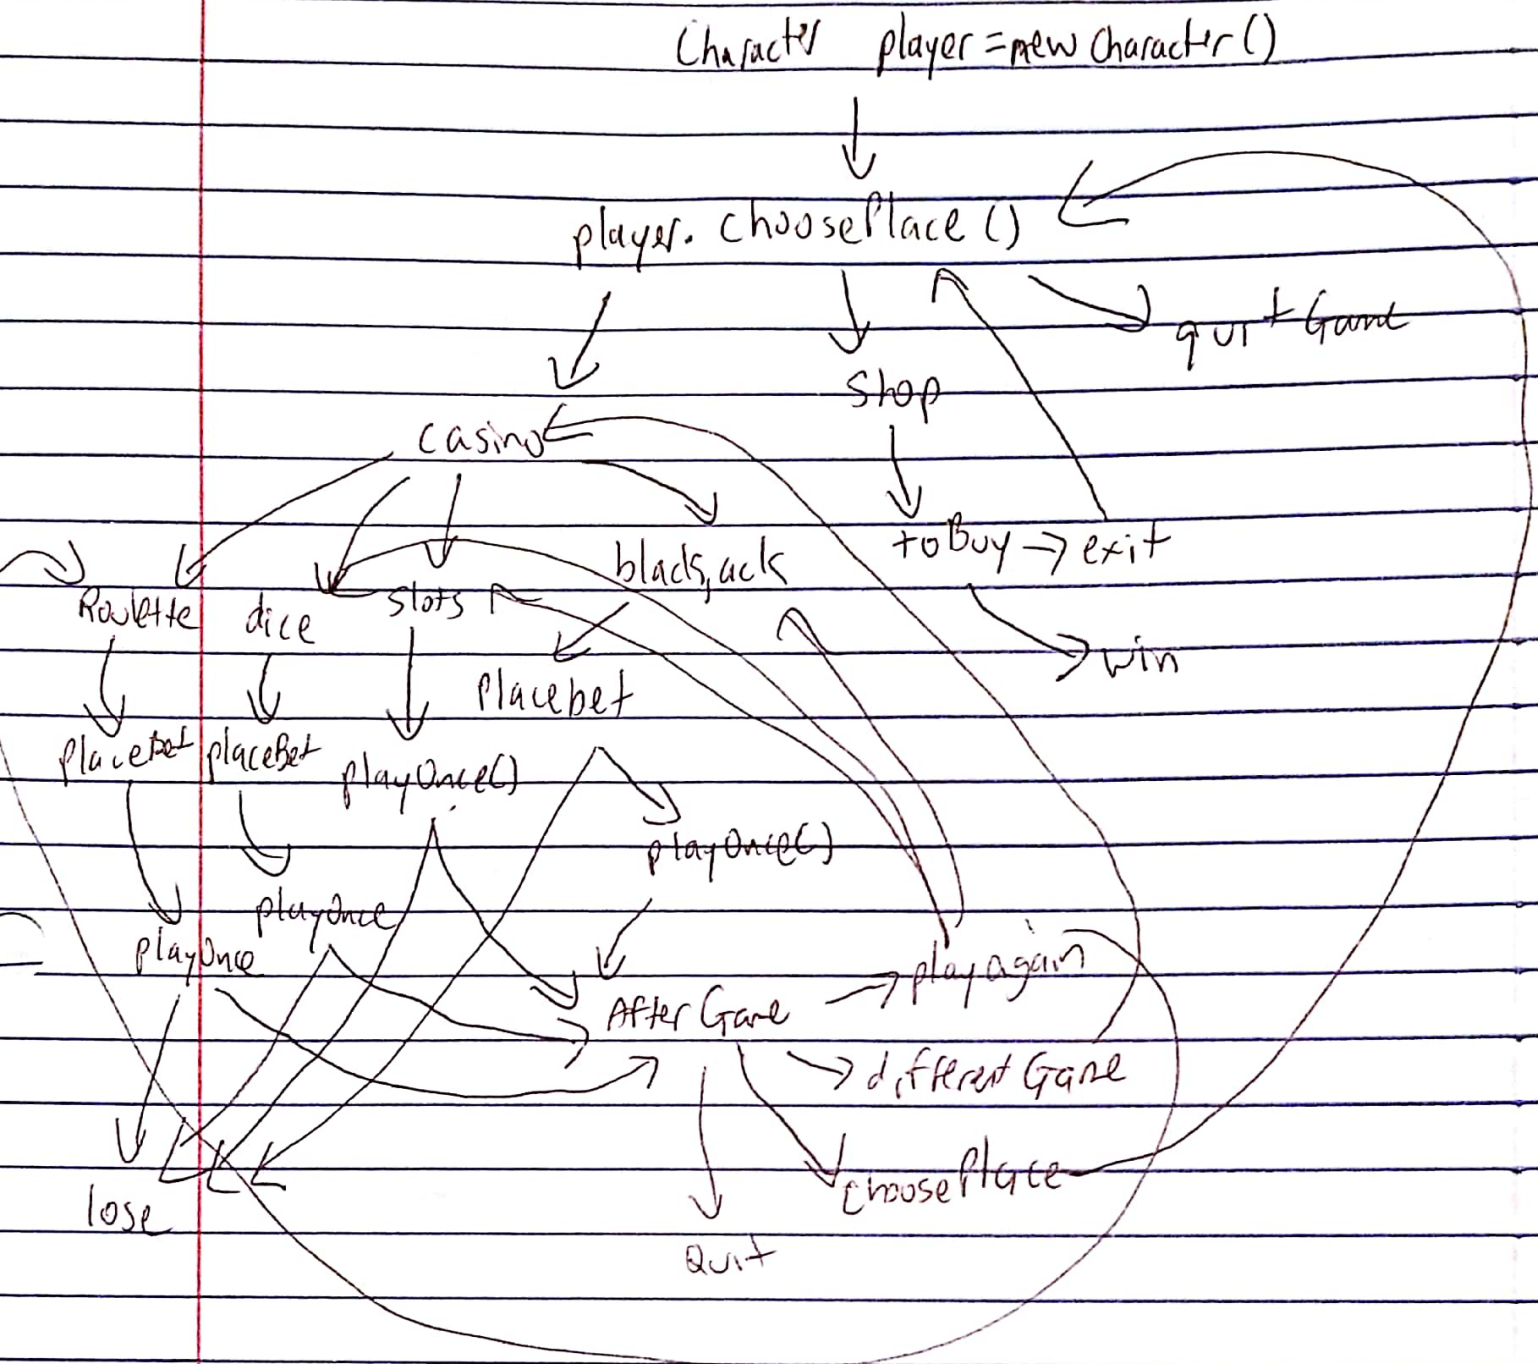 Character player = new Character()
player. choosePlace ()
quit Game
Shop
casino
toBuy → exit
blackjack
Roulette dice slots
win
Placebet
PlaceBet placeBet playOnce()
playOnce()
playOnce
playOnce
After Game → play again
different Game
choosePlace
lose
Quit